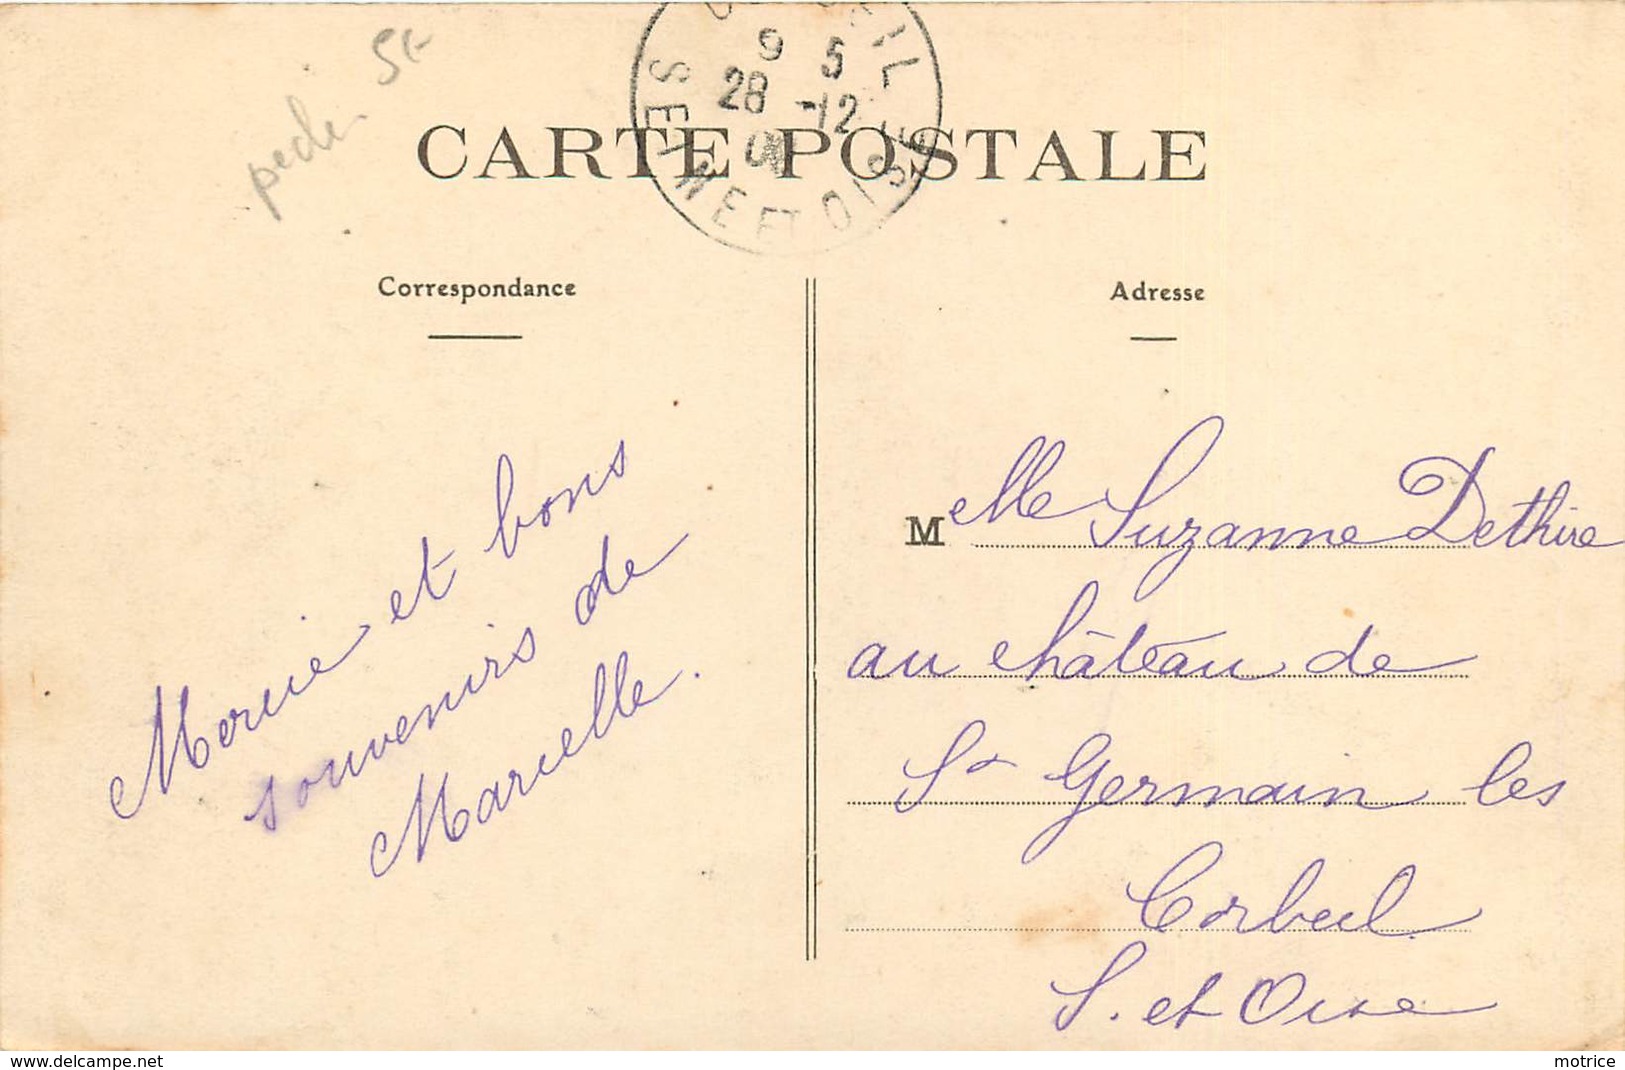 peche 5f
CARTE POSTALE
9 5
28 -12
SEINE ET OISE
Correspondance
Adresse
Mercie et bons
souvenirs de
Marcelle.
Melle Suzanne Dethire
au château de
St Germain les
Corbeil
S. et Oise
delcampe.net
motrice